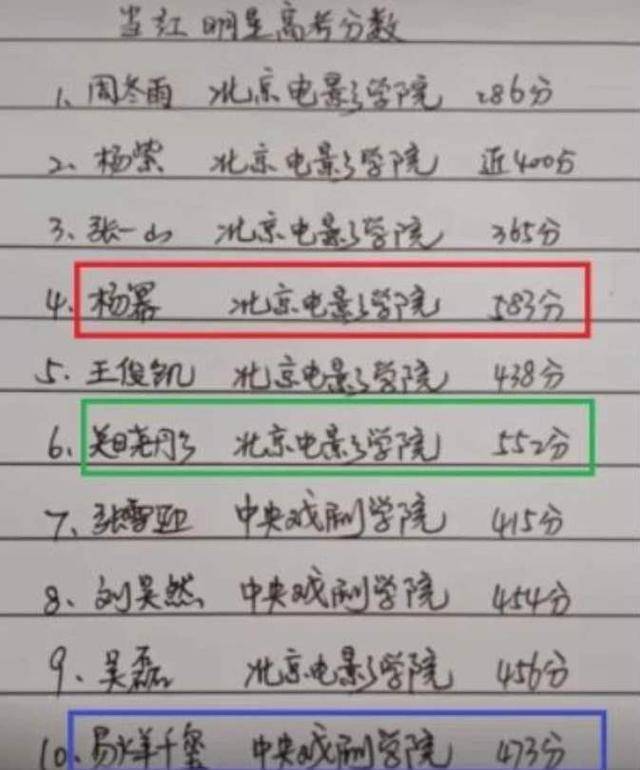 当红明星高考分数
1、周冬雨 北京电影学院 286分
2、杨紫 北京电影学院 近400分
3、张一山 北京电影学院 365分
4、杨幂 北京电影学院 583分
5、王俊凯 北京电影学院 438分
6、关晓彤 北京电影学院 552分
7、张雪迎 中央戏剧学院 415分
8、刘昊然 中央戏剧学院 454分
9、吴磊 北京电影学院 456分
10、易烊千玺 中央戏剧学院 473分